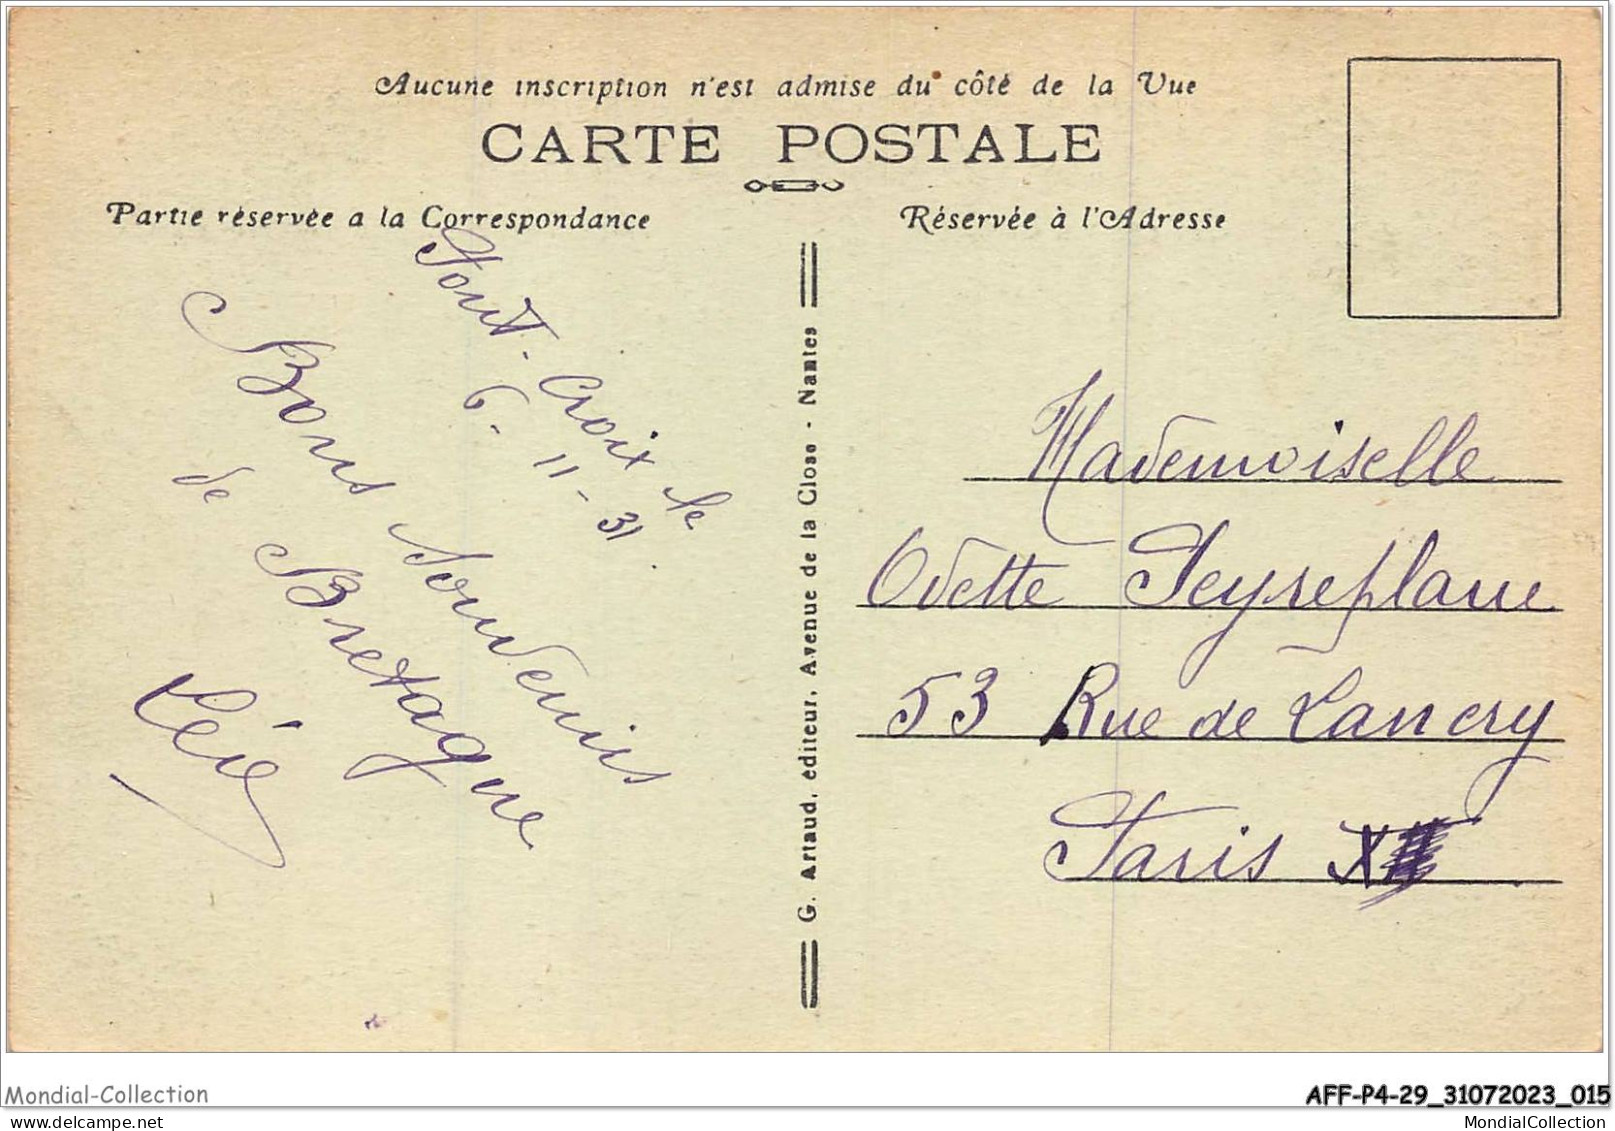 Aucune inscription n'est admise du côté de la Vue
CARTE POSTALE
Partie réservée a la Correspondance
Réservée à l'Adresse
Pont-Croix le
6-11-31
Bons Souvenirs
de Bretagne
G. Artaud, editeur, Avenue de la Close - Nantes
Mademoiselle
Odette Peyreplane
53 Rue de Lancry
Paris X
Mondial-Collection
AFF-P4-29_31072023_015
www.mondialcollection.com
MondialCollection